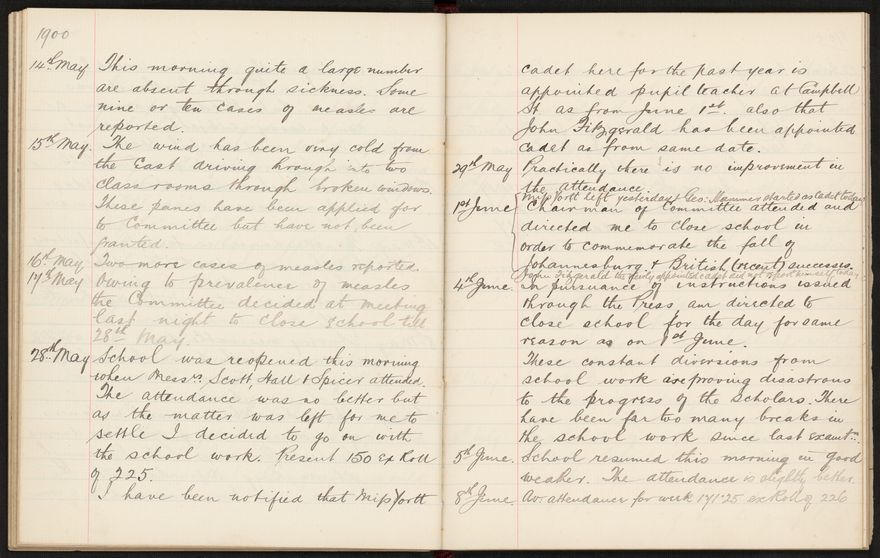 1900
14th May This morning quite a large number
are absent through sickness. Some
nine or ten cases of measles are
reported.
15th May. The wind has been very cold from
the East driving through into two
class rooms through broken windows.
These panes have been applied for
to Committee but have not been
granted.
16th May Two more cases of measles reported.
17th May Owing to prevalence of measles
the Committee decided at meeting
last night to close school till
28th May.
28th May School was reopened this morning
when Messrs. Scott, Hall & Spicer attended.
The attendance was no better but
as the matter was left for me to
settle I decided to go on with
the school work. Present 150 ex Roll
of 225.
I have been notified that Miss Yortt
cadet here for the past year is
appointed pupil teacher at Campbell
St as from June 1st. also that
John Fitzgerald has been appointed
cadet as from same date.
29th May Practically there is no improvement in
the attendance.
Miss Yortt left yesterday & Geo: Hammer started as Cadet today
1st June Chairman of Committee attended and
directed me to close school in
order to commemorate the fall of
Johannesburg & British (recent) successes.
John Fitzgerald the newly appointed cadet did not report himself today
4th June. In pursuance of instructions issued
through the Press, am directed to
close school for the day for same
reason as on 1st June.
These constant diversions from
school work are proving disastrous
to the progress of the scholars. There
have been far too many breaks in
the school work since last examtn.
5th June. School resumed this morning in good
weather. The attendance is slightly better.
8th June. Av. attendance for week 171.25 ex Roll of 226